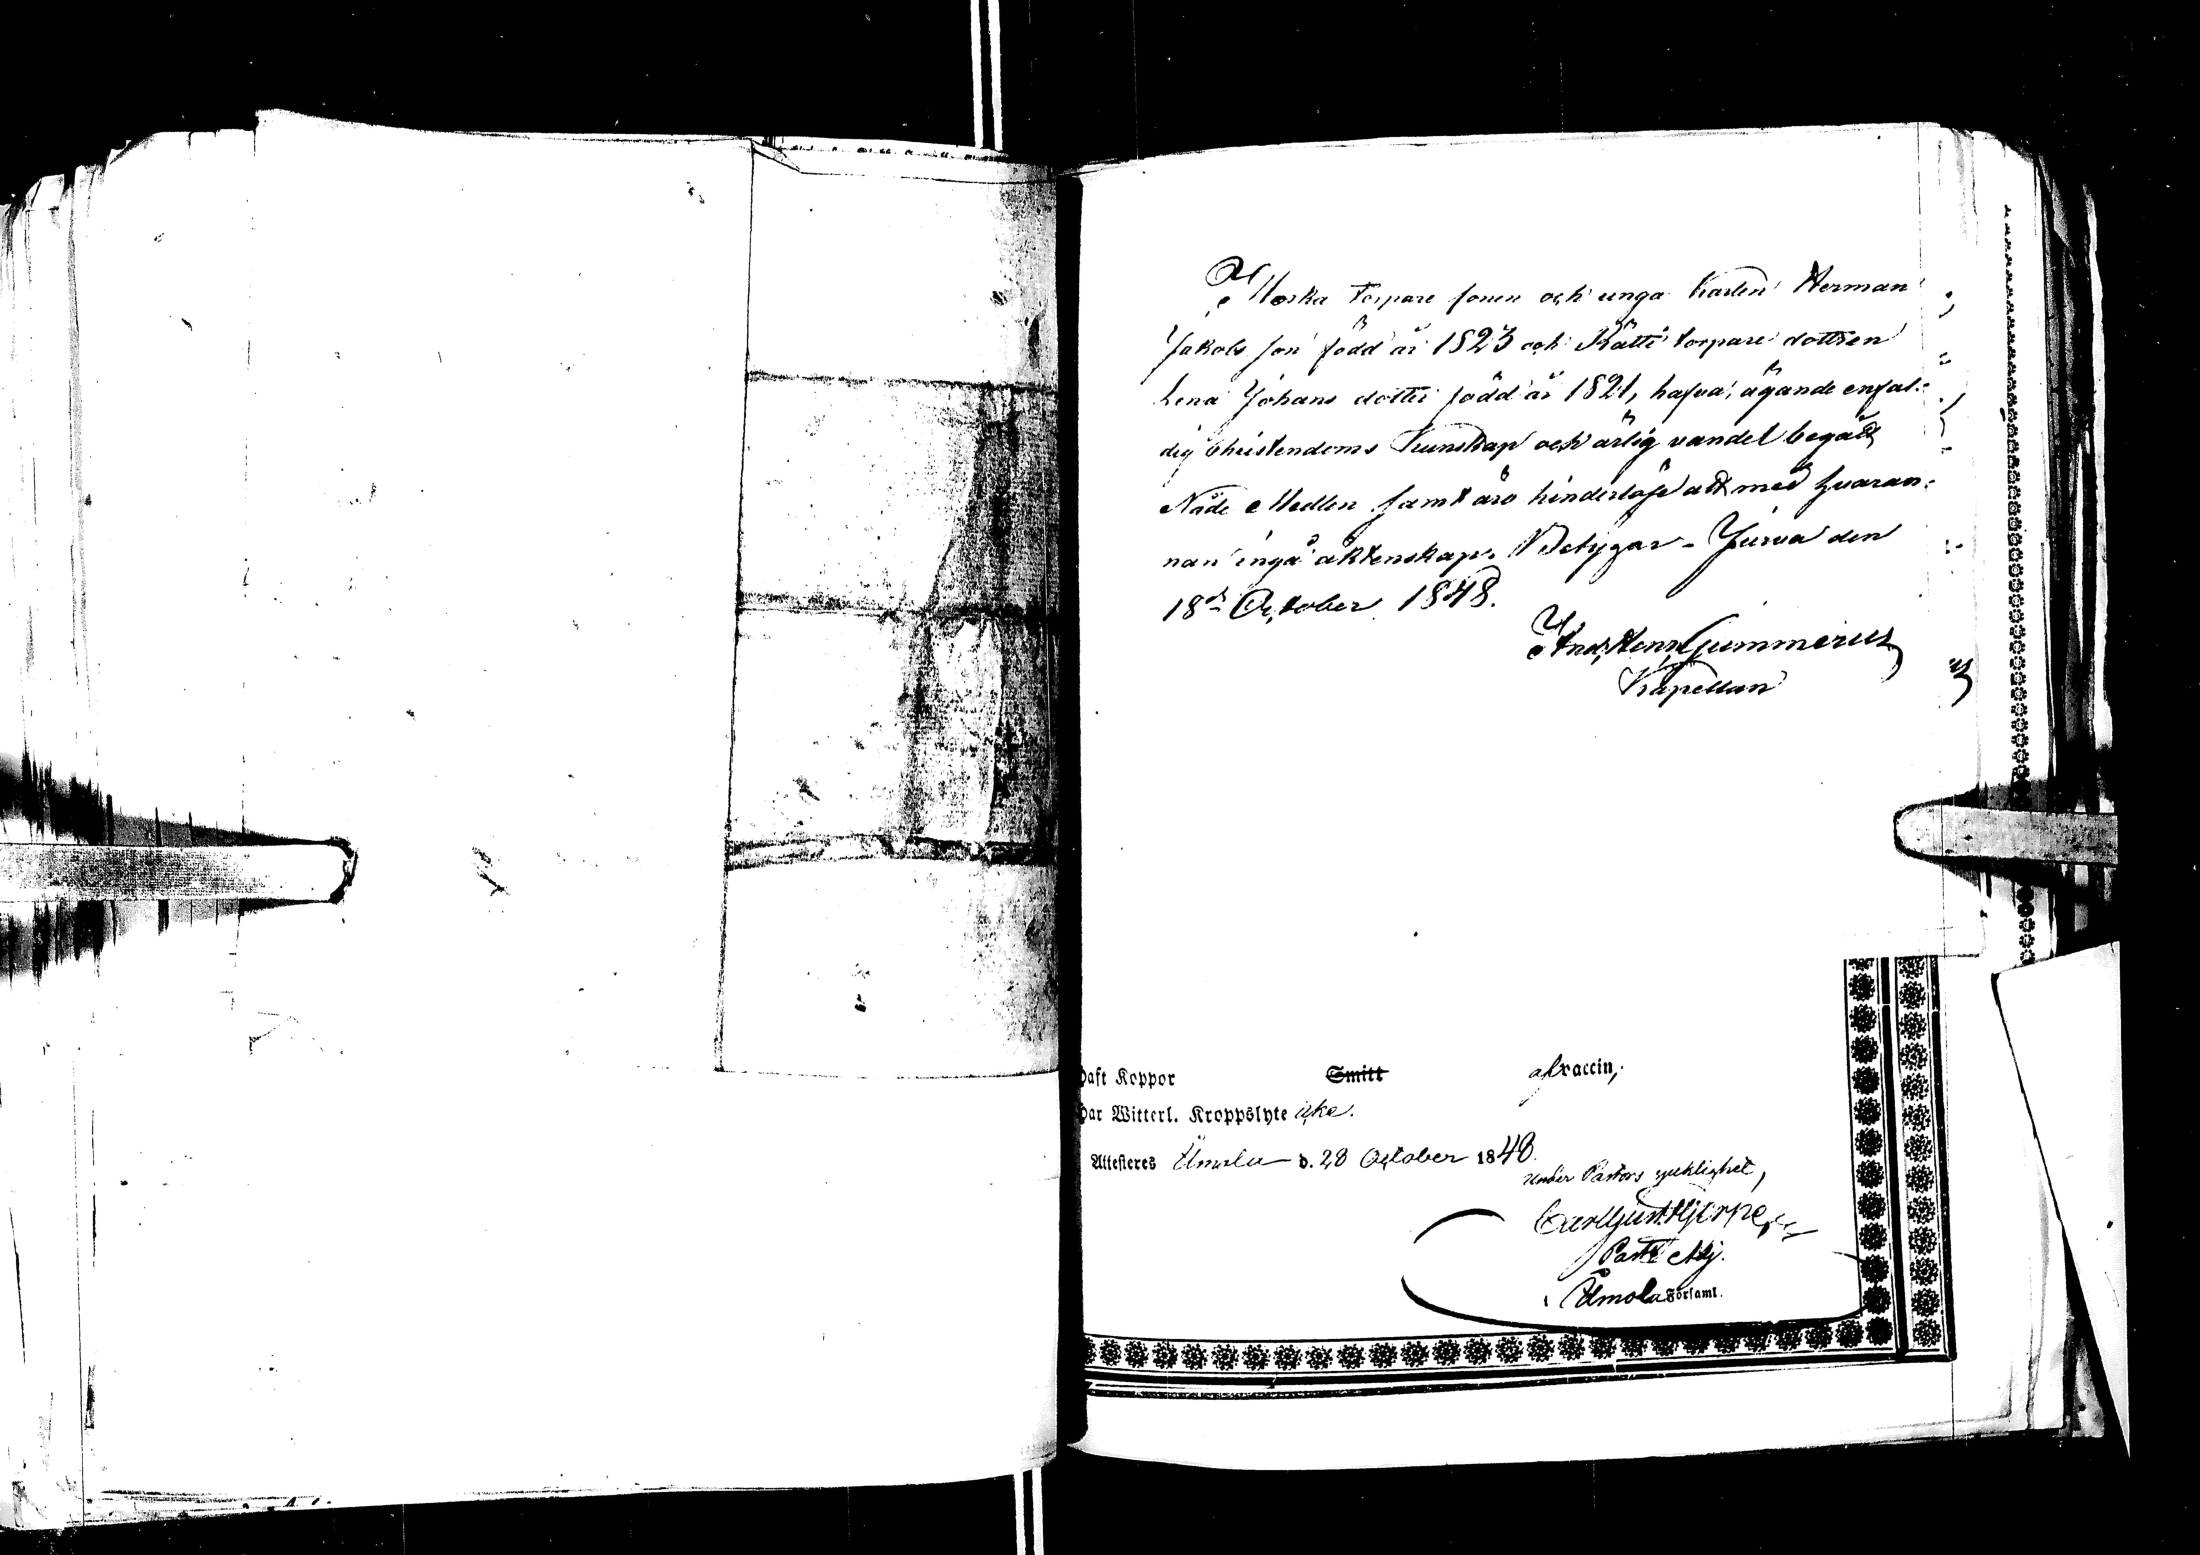 Norka torpare sonen och unga karlen Herman
Jakobs son född år 1823 och Rätti torpare dottren
Lena Johans dotter född år 1821, hafva, ägande enfal-
dig christendoms kunskap och ärlig vandel begått
Nåde Medlen samt äro hinderlöse att med hvaran-
nan ingå äktenskap. Betygar - Jurva den
18de October 1848.
And. Henr. Gummerus
Kapellan
haft Koppor Smitt af vaccin,
har Witterl. Kroppslyte icke.
Attesteres Ilmola d. 28 October 1848.
under Pastors sjuklighet,
Carl Gust. Hjerpe
Past. Adj.
i Ilmola Församl.